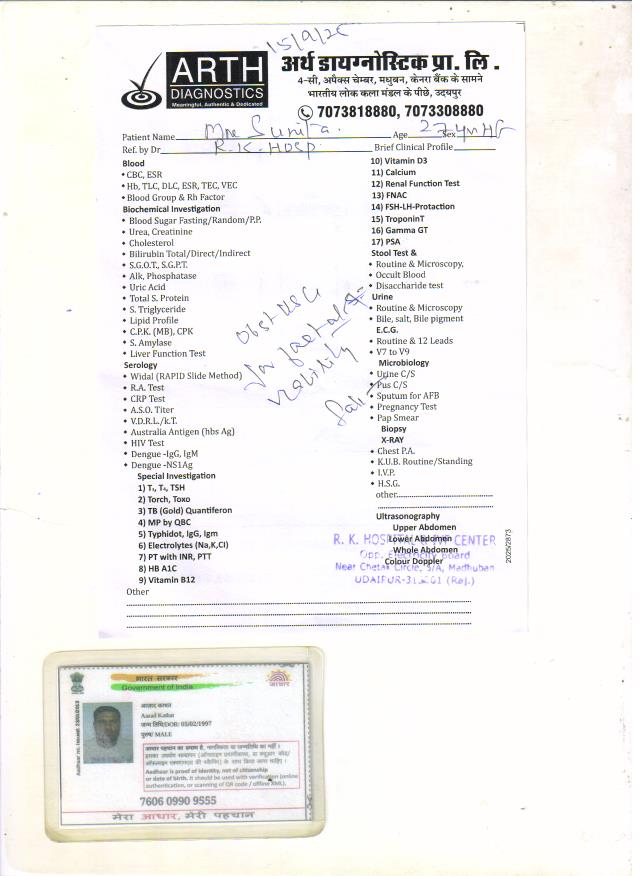 15/9/25
ARTH
DIAGNOSTICS
Meaningful, Authentic & Dedicated
अर्थ डायग्नोस्टिक प्रा. लि .
4-सी, अपैक्स चेम्बर, मधुबन, केनरा बैंक के सामने
भारतीय लोक कला मंडल के पीछे, उदयपुर
7073818880, 7073308880
Patient Name Mrs Sunita. Age 27 Sex
Ref. by Dr. R.K. Hosp. Brief Clinical Profile
Blood
CBC, ESR
Hb, TLC, DLC, ESR, TEC, VEC
Blood Group & Rh Factor
Biochemical Investigation
Blood Sugar Fasting/Random/P.P.
Urea, Creatinine
Cholesterol
Bilirubin Total/Direct/Indirect
S.G.O.T., S.G.P.T.
Alk, Phosphatase
Uric Acid
Total S. Protein
S. Triglyceride
Lipid Profile
C.P.K. (MB), CPK
S. Amylase
Liver Function Test
Serology
Widal (RAPID Slide Method)
R.A. Test
CRP Test
A.S.O. Titer
V.D.R.L./k.T.
Australia Antigen (hbs Ag)
HIV Test
Dengue -IgG, IgM
Dengue -NS1Ag
Special Investigation
1) T₃, T₄, TSH
2) Torch, Toxo
3) TB (Gold) Quantiferon
4) MP by QBC
5) Typhidot, IgG, Igm
6) Electrolytes (Na,K,Cl)
7) PT with INR, PTT
8) HB A1C
9) Vitamin B12
Other
10) Vitamin D3
11) Calcium
12) Renal Function Test
13) FNAC
14) FSH-LH-Protaction
15) TroponinT
16) Gamma GT
17) PSA
Stool Test &
Routine & Microscopy,
Occult Blood
Disaccharide test
Urine
Routine & Microscopy
Bile, salt, Bile pigment
E.C.G.
Routine & 12 Leads
V7 to V9
Microbiology
Urine C/S
Pus C/S
Sputum for AFB
Pregnancy Test
Pap Smear
Biopsy
X-RAY
Chest P.A.
K.U.B. Routine/Standing
I.V.P.
H.S.G.
other
Ultrasonography
Upper Abdomen
Lower Abdomen
Whole Abdomen
Colour Doppler
Obst USG
for foetal
viability
R. K. HOSPITAL CENTER
Opp. Electricity Board
Near Chetak Circle, 5/A, Madhuban
UDAIPUR-313001 (Raj.)
2025/2873
भारत सरकार
Government of India
आधार
Aadhaar no. issued:
Azad Kathat
जन्म तिथि/DOB: 05/02/1997
पुरुष/ MALE
आधार पहचान का प्रमाण है, नागरिकता या जन्मतिथि का नहीं ।
Aadhaar is proof of identity, not of citizenship
or date of birth. It should be used with verification (online
authentication, or scanning of QR code / offline XML).
7606 0990 9555
मेरा आधार, मेरी पहचान